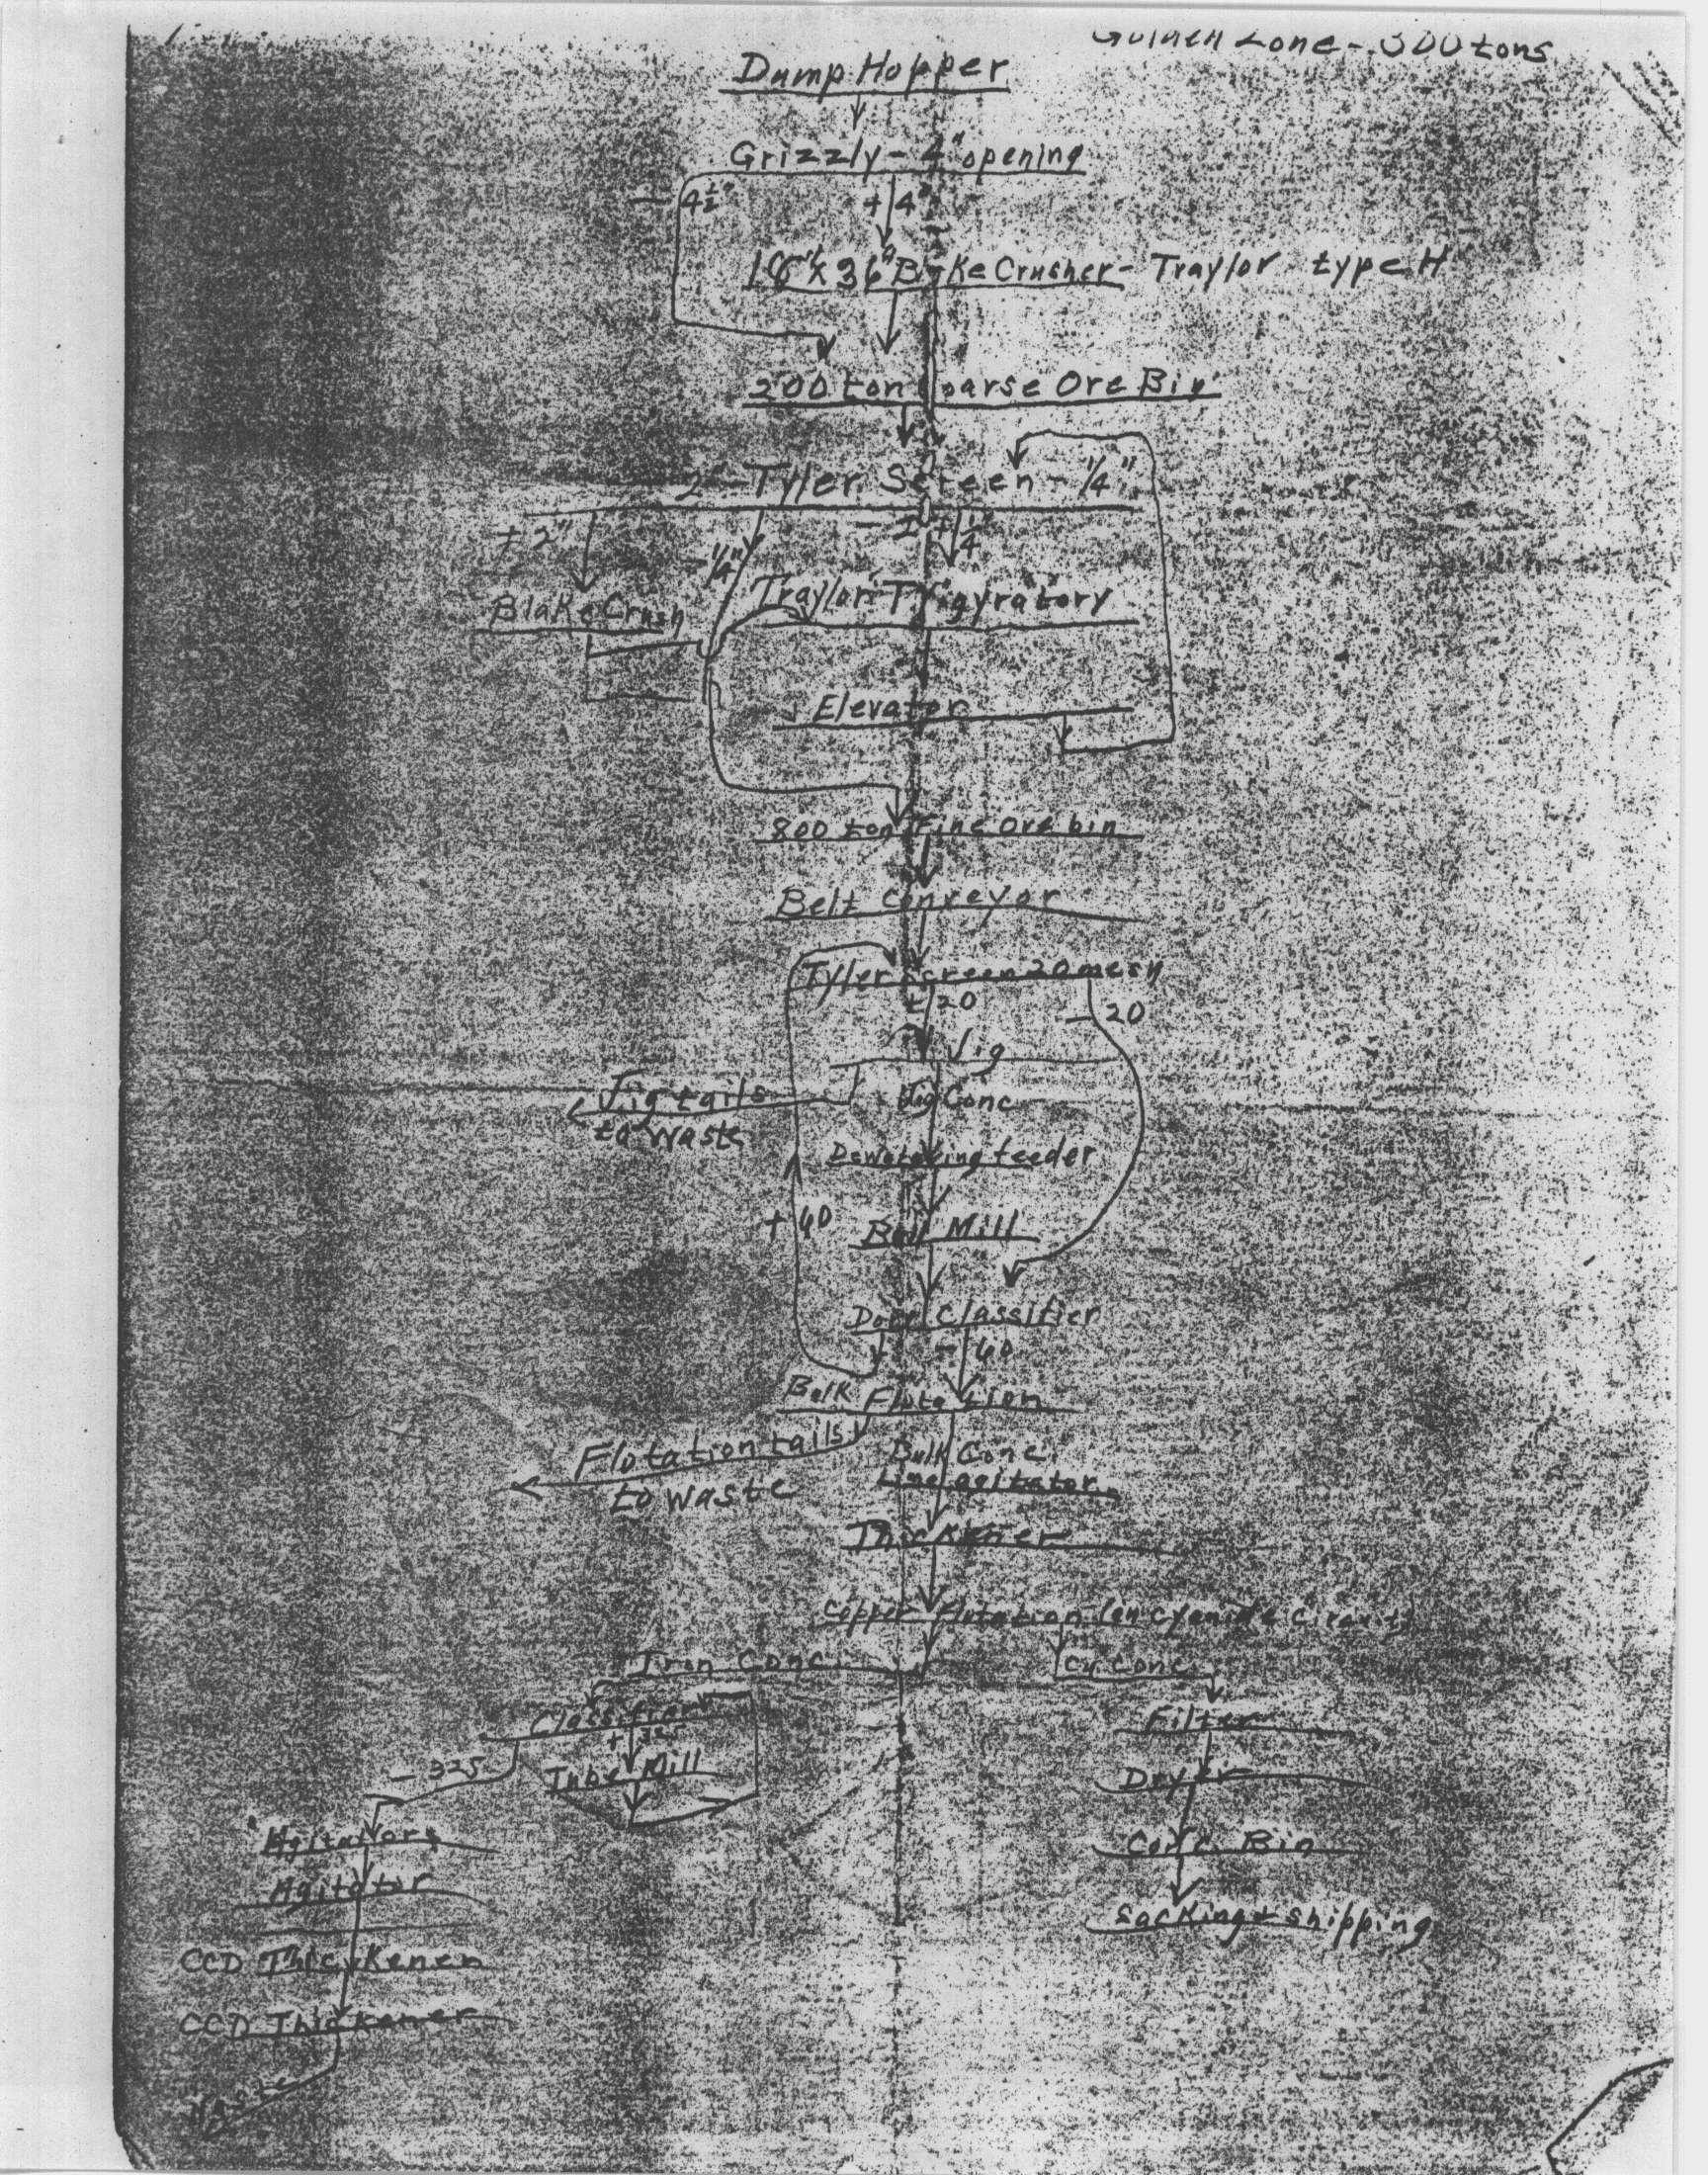 Golden Zone - 300 tons
Dump Hopper
Grizzly - 4" opening
- 4½" + 4"
18" x 36" Blake Crusher - Traylor type H
200 ton Coarse Ore Bin
2" Tyler Screen - 1/4"
+ 2" - 1/4" - 2 + 1/4"
Blake Crush Traylor TY gyratory
Elevator
800 ton Fine Ore bin
Belt Conveyor
Tyler Screen 20 mesh
+ 20 - 20
Jig
Jig tails Jig Conc
to waste
Dewatering feeder
+ 60 Ball Mill
Dorr Classifier
+ - 60
Bulk Flotation
Flotation tails Bulk Conc.
to waste Lime agitator
Thickener
Copper Flotation (in cyanide circuit)
Iron Conc. Cu. Conc.
Classifier Filter
+ 325
- 325 Tube Mill Dryer
Agitators Conc. Bin
Agitator
Sacking & shipping
CCD Thickener
CCD Thickener
Waste